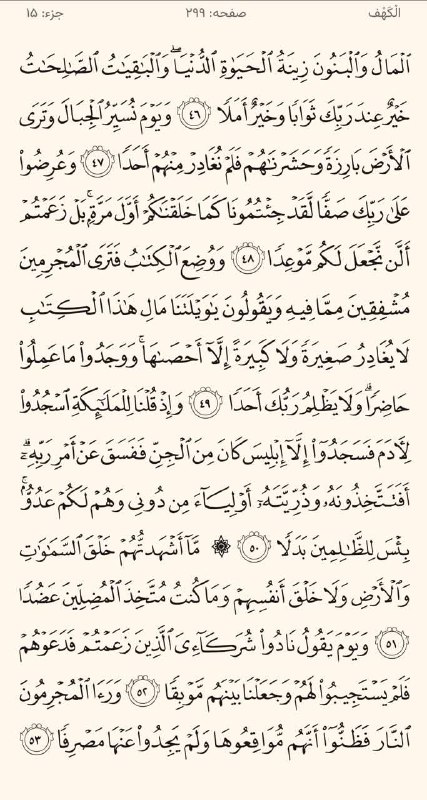 الْكَهْف صفحه: ۲۹۹ جزء: ۱۵
ٱلْمَالُ وَٱلْبَنُونَ زِينَةُ ٱلْحَيَوٰةِ ٱلدُّنْيَا ۖ وَٱلْبَٰقِيَٰتُ ٱلصَّٰلِحَٰتُ
خَيْرٌ عِندَ رَبِّكَ ثَوَابًا وَخَيْرٌ أَمَلًا ۝٤٦ وَيَوْمَ نُسَيِّرُ ٱلْجِبَالَ وَتَرَى
ٱلْأَرْضَ بَارِزَةً وَحَشَرْنَٰهُمْ فَلَمْ نُغَادِرْ مِنْهُمْ أَحَدًا ۝٤٧ وَعُرِضُوا۟
عَلَىٰ رَبِّكَ صَفًّا لَّقَدْ جِئْتُمُونَا كَمَا خَلَقْنَٰكُمْ أَوَّلَ مَرَّةٍۭ ۚ بَلْ زَعَمْتُمْ
أَلَّن نَّجْعَلَ لَكُم مَّوْعِدًا ۝٤٨ وَوُضِعَ ٱلْكِتَٰبُ فَتَرَى ٱلْمُجْرِمِينَ
مُشْفِقِينَ مِمَّا فِيهِ وَيَقُولُونَ يَٰوَيْلَتَنَا مَالِ هَٰذَا ٱلْكِتَٰبِ
لَا يُغَادِرُ صَغِيرَةً وَلَا كَبِيرَةً إِلَّآ أَحْصَىٰهَا ۚ وَوَجَدُوا۟ مَا عَمِلُوا۟
حَاضِرًا ۗ وَلَا يَظْلِمُ رَبُّكَ أَحَدًا ۝٤٩ وَإِذْ قُلْنَا لِلْمَلَٰٓئِكَةِ ٱسْجُدُوا۟
لِءَادَمَ فَسَجَدُوٓا۟ إِلَّآ إِبْلِيسَ كَانَ مِنَ ٱلْجِنِّ فَفَسَقَ عَنْ أَمْرِ رَبِّهِۦٓ ۗ
أَفَتَتَّخِذُونَهُۥ وَذُرِّيَّتَهُۥٓ أَوْلِيَآءَ مِن دُونِى وَهُمْ لَكُمْ عَدُوٌّۢ ۚ
بِئْسَ لِلظَّٰلِمِينَ بَدَلًا ۝٥٠ ۞ مَّآ أَشْهَدتُّهُمْ خَلْقَ ٱلسَّمَٰوَٰتِ
وَٱلْأَرْضِ وَلَا خَلْقَ أَنفُسِهِمْ وَمَا كُنتُ مُتَّخِذَ ٱلْمُضِلِّينَ عَضُدًا
۝٥١ وَيَوْمَ يَقُولُ نَادُوا۟ شُرَكَآءِىَ ٱلَّذِينَ زَعَمْتُمْ فَدَعَوْهُمْ
فَلَمْ يَسْتَجِيبُوا۟ لَهُمْ وَجَعَلْنَا بَيْنَهُم مَّوْبِقًا ۝٥٢ وَرَءَا ٱلْمُجْرِمُونَ
ٱلنَّارَ فَظَنُّوٓا۟ أَنَّهُم مُّوَاقِعُوهَا وَلَمْ يَجِدُوا۟ عَنْهَا مَصْرِفًا ۝٥٣